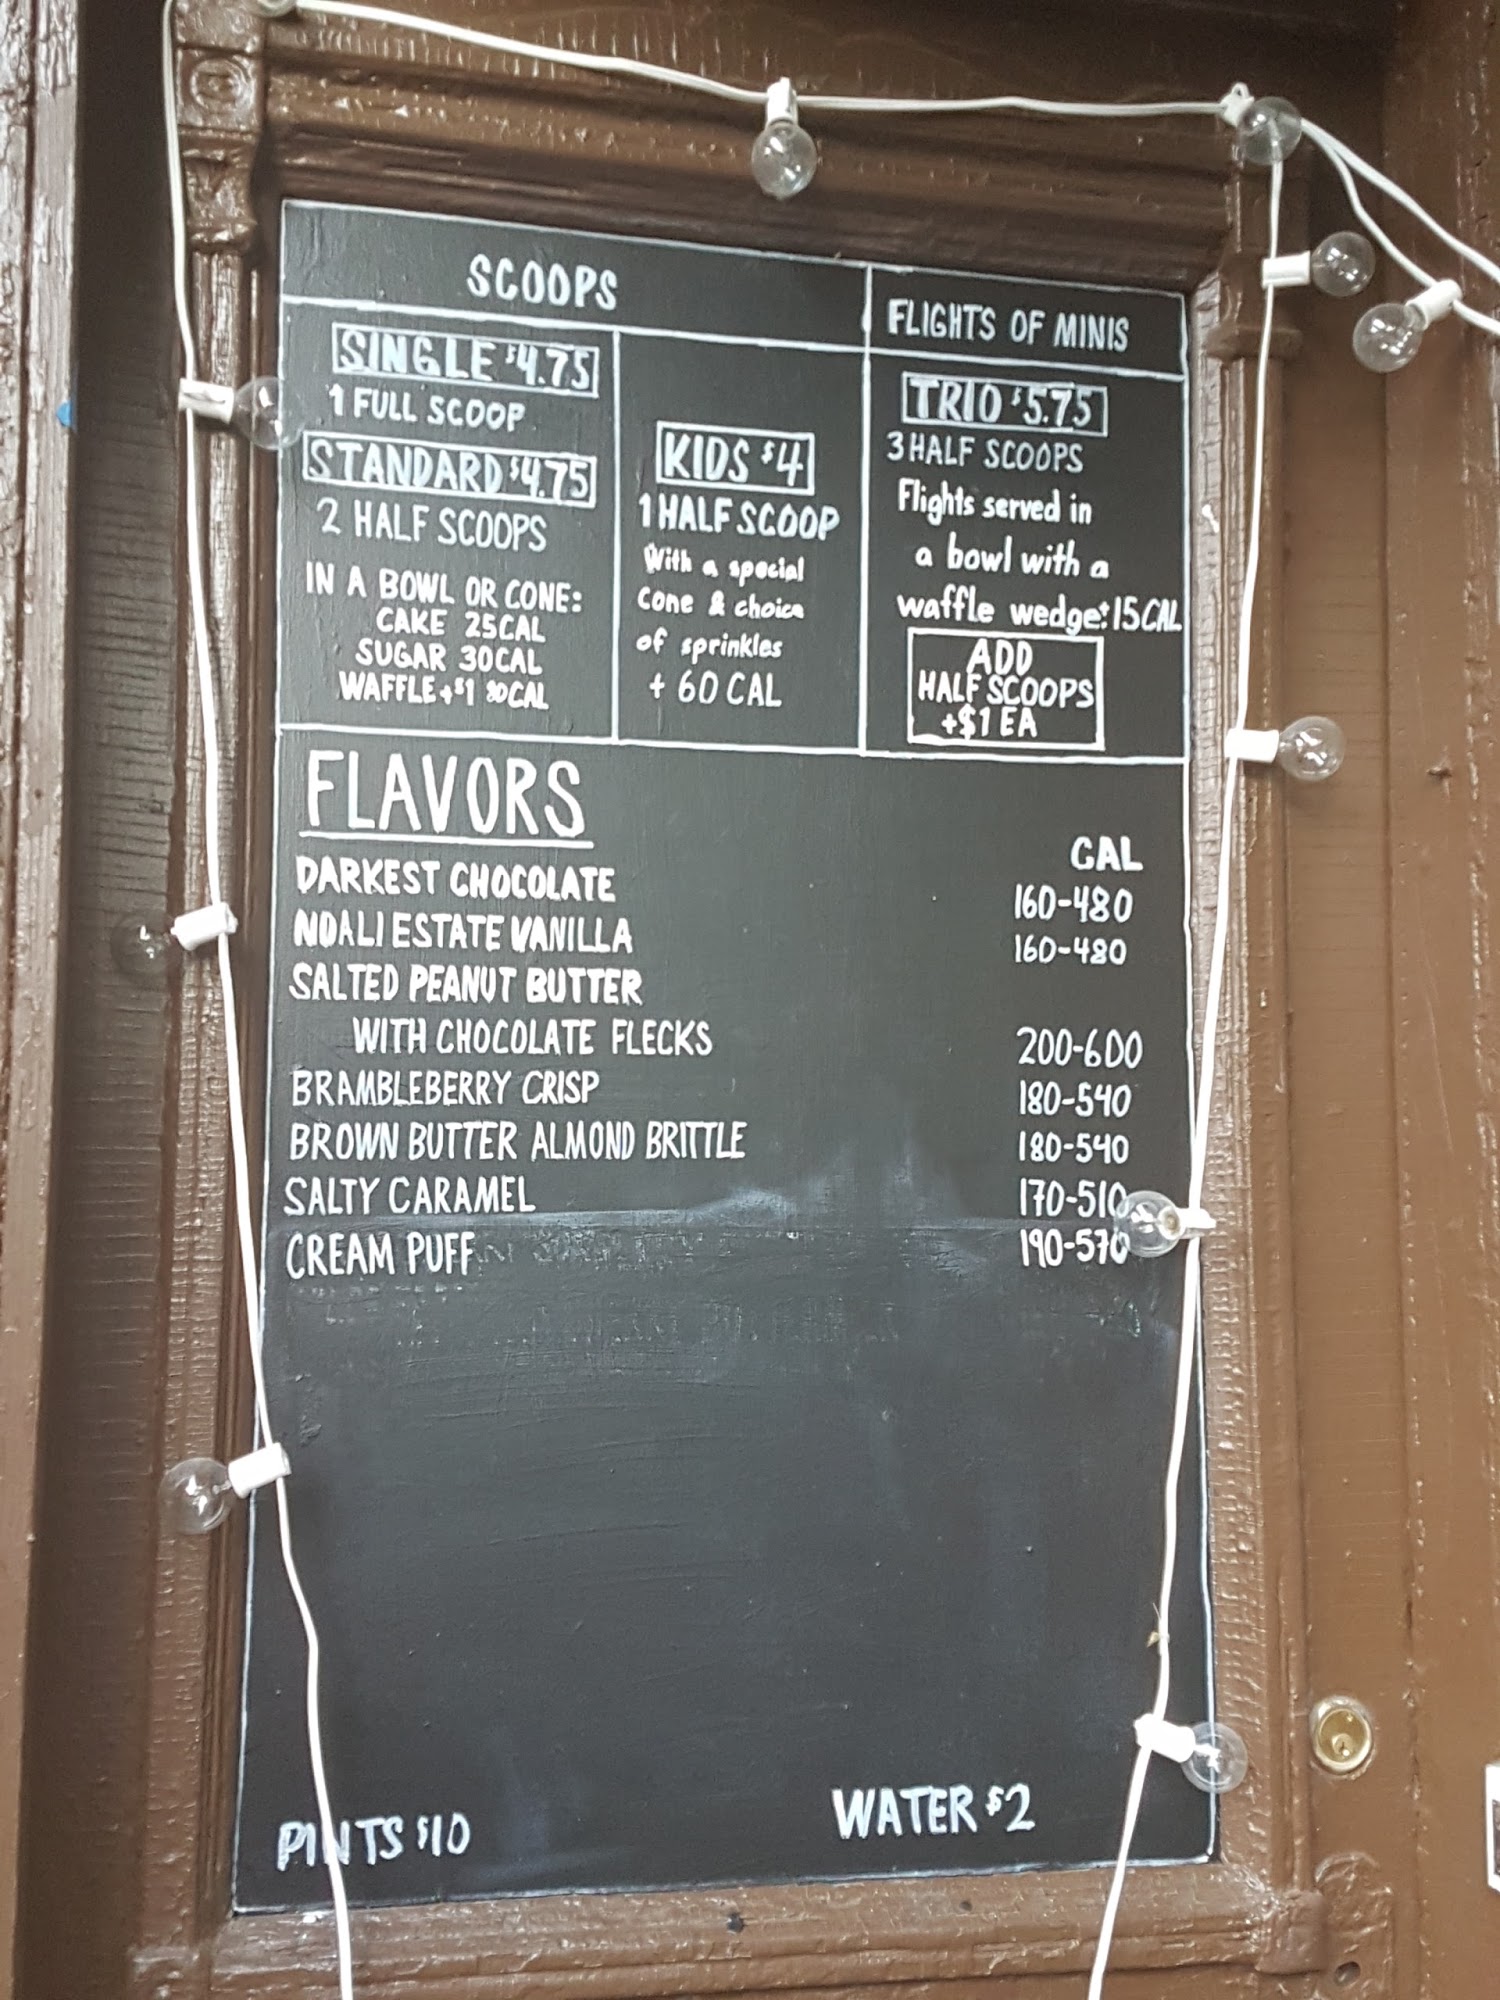 SCOOPS
SINGLE $4.75
1 FULL SCOOP
STANDARD $4.75
2 HALF SCOOPS
IN A BOWL OR CONE:
CAKE 25CAL
SUGAR 30CAL
WAFFLE +$1 80CAL
KIDS $4
1 HALF SCOOP
With a special
cone & choice
of sprinkles
+ 60 CAL
FLIGHTS OF MINIS
TRIO $5.75
3 HALF SCOOPS
Flights served in
a bowl with a
waffle wedge: +15CAL
ADD
HALF SCOOPS
+$1 EA
FLAVORS
CAL
DARKEST CHOCOLATE 160-480
NDALI ESTATE VANILLA 160-480
SALTED PEANUT BUTTER
WITH CHOCOLATE FLECKS 200-600
BRAMBLEBERRY CRISP 180-540
BROWN BUTTER ALMOND BRITTLE 180-540
SALTY CARAMEL 170-510
CREAM PUFF 190-570
PINTS $10
WATER $2